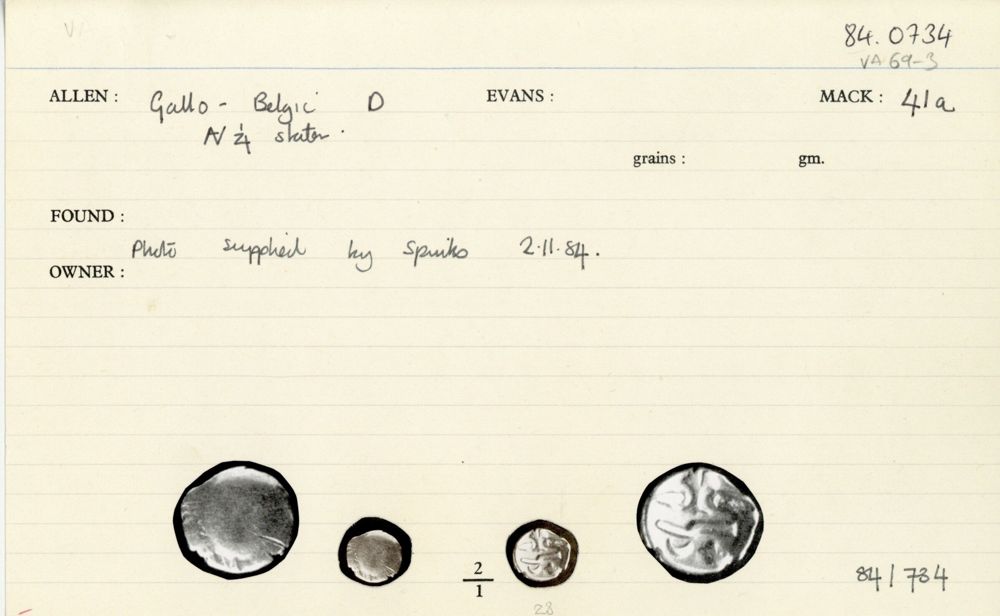 84.0734
VA 69-3
ALLEN : Gallo - Belgic D EVANS : MACK : 41a
N ¼ stater.
grains : gm.
FOUND :
Photo supplied by Spinks 2.11.84.
OWNER :
2
1
84/734
28